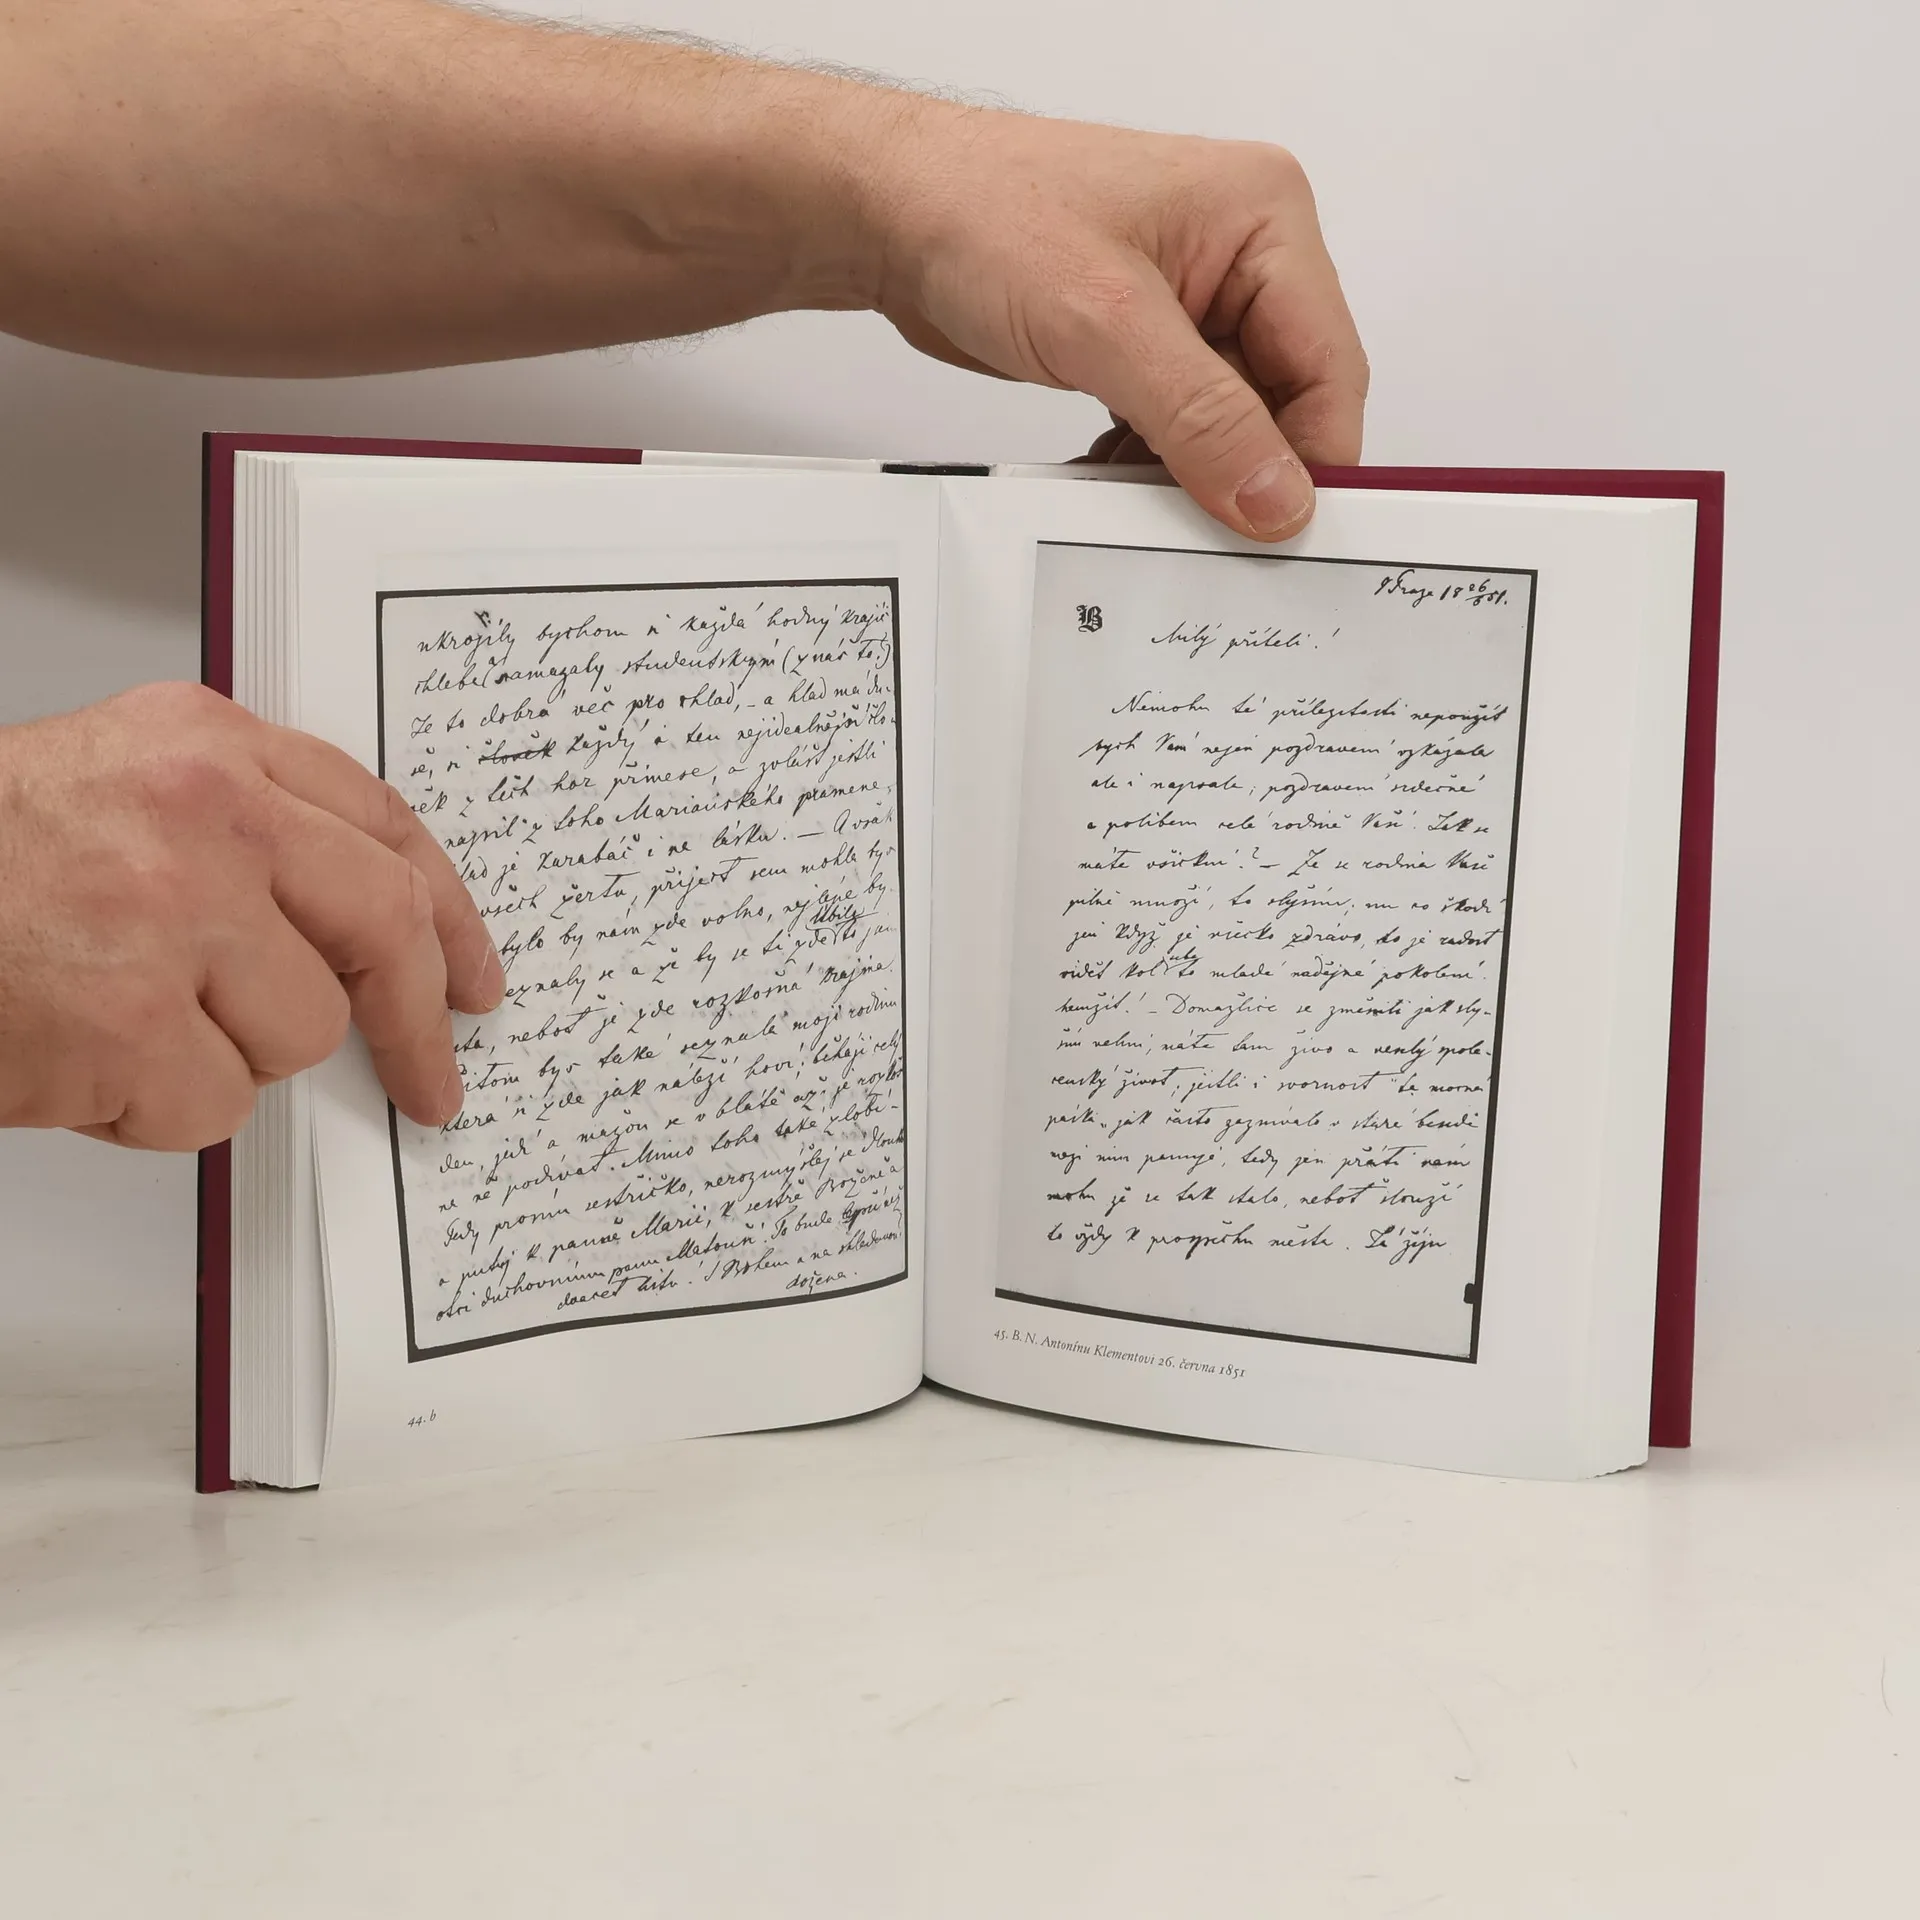 ukrojily bychom si každá hodný krajíc
chleba (namazaly studentským (znáš to?)
Že to dobrá věc pro chlad, - a hlad má du-
še, si člověk každý i ten nejideálnější člo-
věk z těch hor přinese, a zvlášť jestli
napil z toho Mariánského pramene,
hlad je karabáč i ne lásku. — Avšak
všech žertů, přijeď sem mohla bys
bylo by nám zde volno, nejlépe by
líbilo
seznaly se a že by se ti zde to
neboť je zde rozkošná krajina.
Přitom bys také seznala moji rodinu
která si zde jak náleží hoví; běhají celý
den, jedí a mažou se v blátě až je rozkoš
na ně podívat. Mimo toho také zlobí-
Tedy prosím sestřičko, nerozmýšlej se dlouho
a putuj k panně Marii, k sestře Boženě a
otci duchovnímu panu Matouši! To bude
S Bohem a na shledanou
Božena.
44. b
V Praze 18 26/6 51.
B
Milý příteli!
Nemohu té příležitosti nepoužít
bych Vám nejen pozdravení vzkázala
ale i napsala; pozdravení srdečné
a políbení celé rodině Vaší. Jak se
máte všickni? — Že se rodina Vaše
pilně množí, to slyším; nu co škodí
jen když je všecko zdrávo, to je radost
vidět kol to mladé nadějné pokolení
hemžit! — Domažlice se změnili jak sly-
ším velmi, máte tam živo a veselý spole-
čenský život; jestli i svornost "ta mocná
páska" jak často zaznívalo v staré besedě
mezi nimi panuje, tedy jen přáti vám
mohu že se tak stalo, neboť slouží
to vždy k prospěchu města. Já žiju
45. B. N. Antonínu Klementovi 26. června 1851